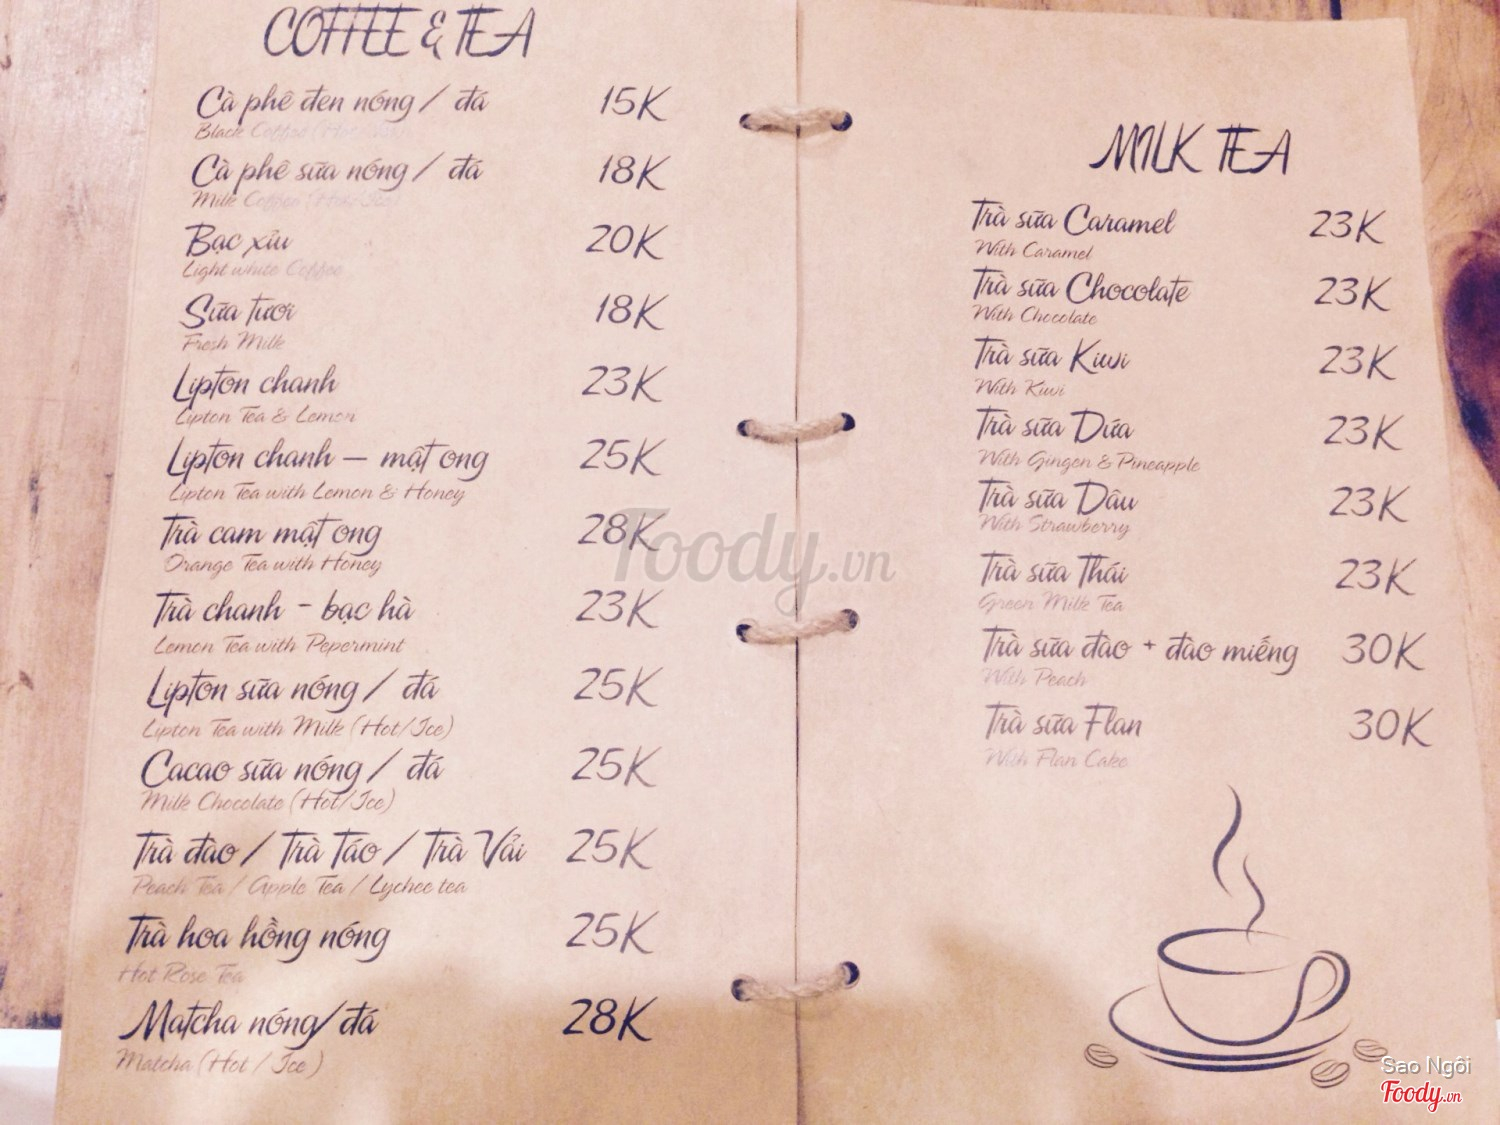 COFFEE & TEA
Cà phê đen nóng / đá 15K
Black Coffee (Hot/Ice)
Cà phê sữa nóng / đá 18K
Milk Coffee (Hot/Ice)
Bạc xỉu 20K
Light white Coffee
Sữa tươi 18K
Fresh Milk
Lipton chanh 23K
Lipton Tea & Lemon
Lipton chanh – mật ong 25K
Lipton Tea with Lemon & Honey
Trà cam mật ong 28K
Orange Tea with Honey
Trà chanh - bạc hà 23K
Lemon Tea with Pepermint
Lipton sữa nóng / đá 25K
Lipton Tea with Milk (Hot/Ice)
Cacao sữa nóng / đá 25K
Milk Chocolate (Hot/Ice)
Trà đào / Trà Táo / Trà Vải 25K
Peach Tea / Apple Tea / Lychee tea
Trà hoa hồng nóng 25K
Hot Rose Tea
Matcha nóng/đá 28K
Matcha (Hot / Ice )
MILK TEA
Trà sữa Caramel 23K
With Caramel
Trà sữa Chocolate 23K
With Chocolate
Trà sữa Kiwi 23K
With Kiwi
Trà sữa Dứa 23K
With Gingen & Pineapple
Trà sữa Dâu 23K
With Strawberry
Trà sữa Thái 23K
Green Milk Tea
Trà sữa đào + đào miếng 30K
With Peach
Trà sữa Flan 30K
With Flan Cake
Foody.vn
Sao Ngôi
Foody.vn